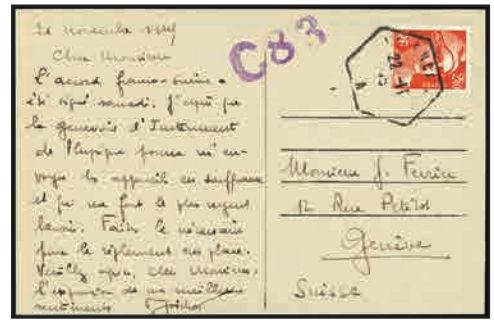 Cher Monsieur
L'accord franco-suisse a
été signé samedi. J'espère que
la genevoise d'Instrument
de Physique pourra m'en-
voyer les appareils en souffrance
et qui me font le plus urgent
besoin. Faites le nécessaire
pour le règlement sur place.
Veuillez agréer, cher Monsieur,
l'expression de mes meilleurs
sentiments
C83
22-11
45
A
Monsieur J.
12 Rue Petitot
Genève
Suisse